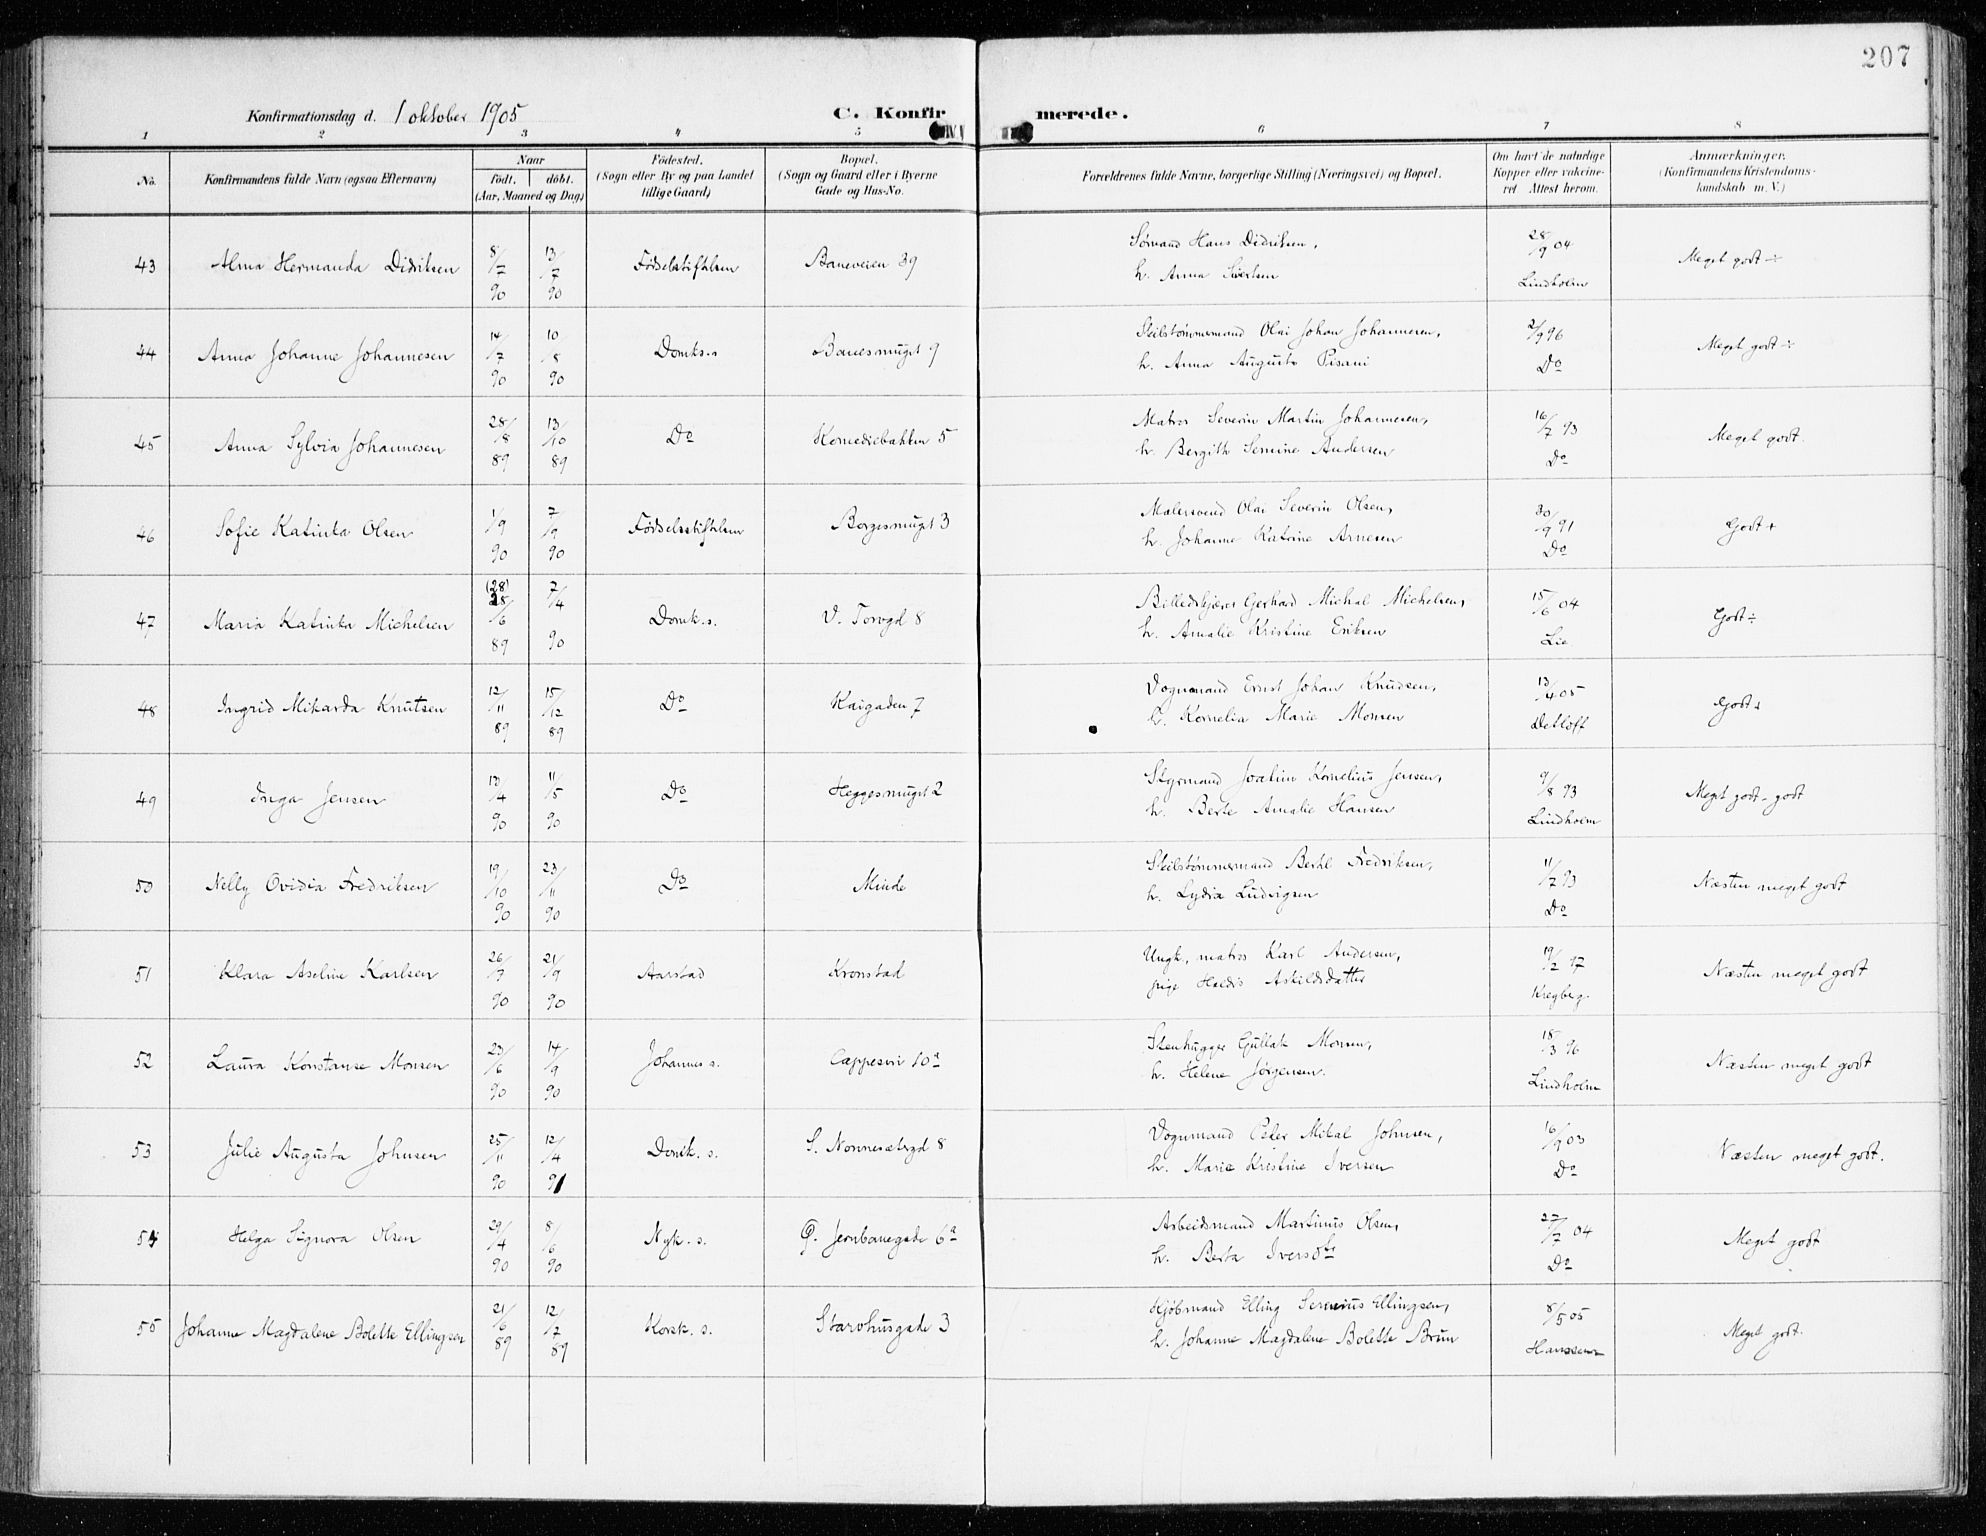 207
Konfirmationsdag d. 1 oktober 1905 C. Konfirmerede.
1 2 3 4 5 6 7 8
No. Konfirmandens fulde Navn (ogsaa Efternavn) Naar født, døbt. (Aar, Maaned og Dag) Fødested. (Sogn eller By og paa Landet tillige Gaard) Bopæl. (Sogn og Gaard eller i Byerne Gade og Hus-No. Forældrenes fulde Navne, borgerlige Stilling (Næringsvei) og Bopæl. Om havt de naturlige Kopper eller vakcineret Attest herom. Anmærkninger. (Konfirmandens Kristendomskundskab m. V.)
43 Alma Hermanda Didriksen 8/7 90 13/7 90 Fødselsstiftelsen Baneveien 39 Sømand Hans Didriksen,
h. Anna Sivertsen 28/9 04 Lindholm Meget godt ÷
44 Anna Johanne Johannesen 14/7 90 10/8 90 Domks. Banesmuget 9 Seilstømmermand Olai Johan Johannesen,
h. Anna Augusta Pisani 2/9 96 Do Meget godt ÷
45 Anna Sylvia Johannesen 28/8 89 13/10 89 Do Komediebakken 5 Matros Severin Martin Johannesen,
h. Bergith Semine Andersen 16/7 93 Do Meget godt.
46 Sofie Katinka Olsen 1/9 90 7/9 90 Fødselsstiftelsen Borgesmuget 3 Malersvend Olai Severin Olsen,
h. Johanne Katrine Arnesen 30/9 91 Do Godt +
47 Maria Katinka Michelsen (28) 28/6 89 7/4 90 Domk. s. V. Torvgd 8 Billedskjærer Gerhard Michal Michelsen,
h. Amalie Kristine Eriksen 15/6 04 Lie Godt ÷
48 Ingrid Mikarda Knutsen 12/11 89 15/12 89 Do Kaigaden 7 Vognmand Ernst Johan Knudsen,
h. Kornelia Marie Monsen 13/4 05 Detloff Godt
49 Inga Jensen 13/4 90 11/5 90 Do Heggesmuget 2 Styrmand Joakim Kornelius Jensen,
h. Berte Amalie Hansen 9/8 93 Lindholm Meget godt - godt
50 Nelly Ovidia Fredriksen 19/10 90 23/11 90 Do Minde Seilstømmermand Bertel Fredriksen,
h. Lydia Ludvigsen 11/7 93 Do Næsten meget godt
51 Klara Aseline Karlsen 26/7 90 21/9 90 Aarstad Kronstad Ungk, matros Karl Andersen,
pige Heldis Askildsdatter 19/2 97 Næsten meget godt
52 Laura Konstanse Monsen 23/6 90 14/9 90 Johannes s. Cappesvei 10a Stenhugger Gullak Monsen,
h. Helene Jørgensen. 18/3 96 Lindholm Næsten meget godt
53 Julie Augusta Johnsen 25/11 90 12/4 91 Domk. s. S. Nonnesætergd 8 Vognmand Peter Mikal Johnsen,
h. Marie Kristine Iversen 16/9 03 Do Næsten meget godt.
54 Helga Signora Olsen 29/4 90 8/6 90 Nyk. s. G. Jernbanegade 6a Arbeidsmand Martinus Olsen,
h. Berta Iversdtr 27/7 04 Do Meget godt
55 Johanne Magdalene Bolette Ellingsen 21/6 89 12/7 89 Korsk. s. Starvhusgade 3 Kjøbmand Elling Severius Ellingsen,
h. Johanne Magdalene Bolette Brun 8/5 05 Hanssen Meget godt.